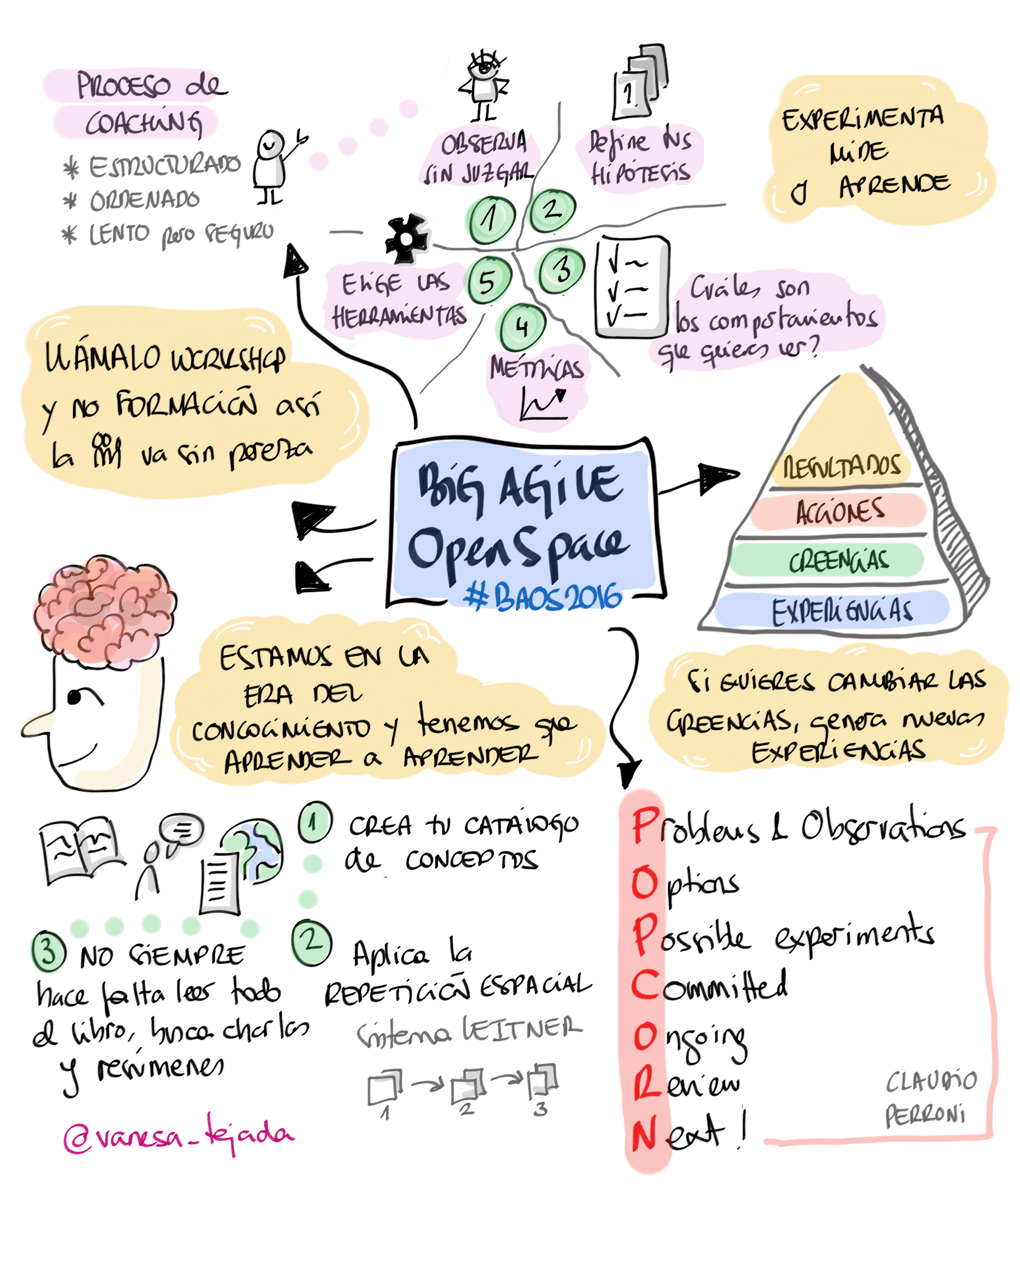 PROCESO de
COACHING
* ESTRUCTURADO
* ORDENADO
* LENTO pero SEGURO
OBSERVA
SIN JUZGAR
1
Define tus
HIPÓTESIS
1
2
3
4
5
EXPERIMENTA
MIDE
y APRENDE
ELIGE LAS
HERRAMIENTAS
Cuáles son
los comportamientos
que quieres ver?
MÉTRICAS
LLÁMALO WORKSHOP
y no FORMACIÓN así
la va sin pereza
BIG AGILE
OpenSpace
#BAOS2016
RESULTADOS
ACCIONES
CREENCIAS
EXPERIENCIAS
SI QUIERES CAMBIAR LAS
CREENCIAS, genera nuevas
EXPERIENCIAS
ESTAMOS EN LA
ERA DEL
CONOCIMIENTO y tenemos que
APRENDER a APRENDER
1 CREA tu CATÁLOGO
de CONCEPTOS
2 Aplica la
REPETICIÓN ESPACIAL
Sistema LEITNER
1 2 3
3 NO SIEMPRE
hace falta leer todo
el libro, busca charlas
y resúmenes
@vanesa_tejada
Problems & Observations
Options
Possible experiments
Committed
Ongoing
Review
Next!
CLAUDIO
PERRONI